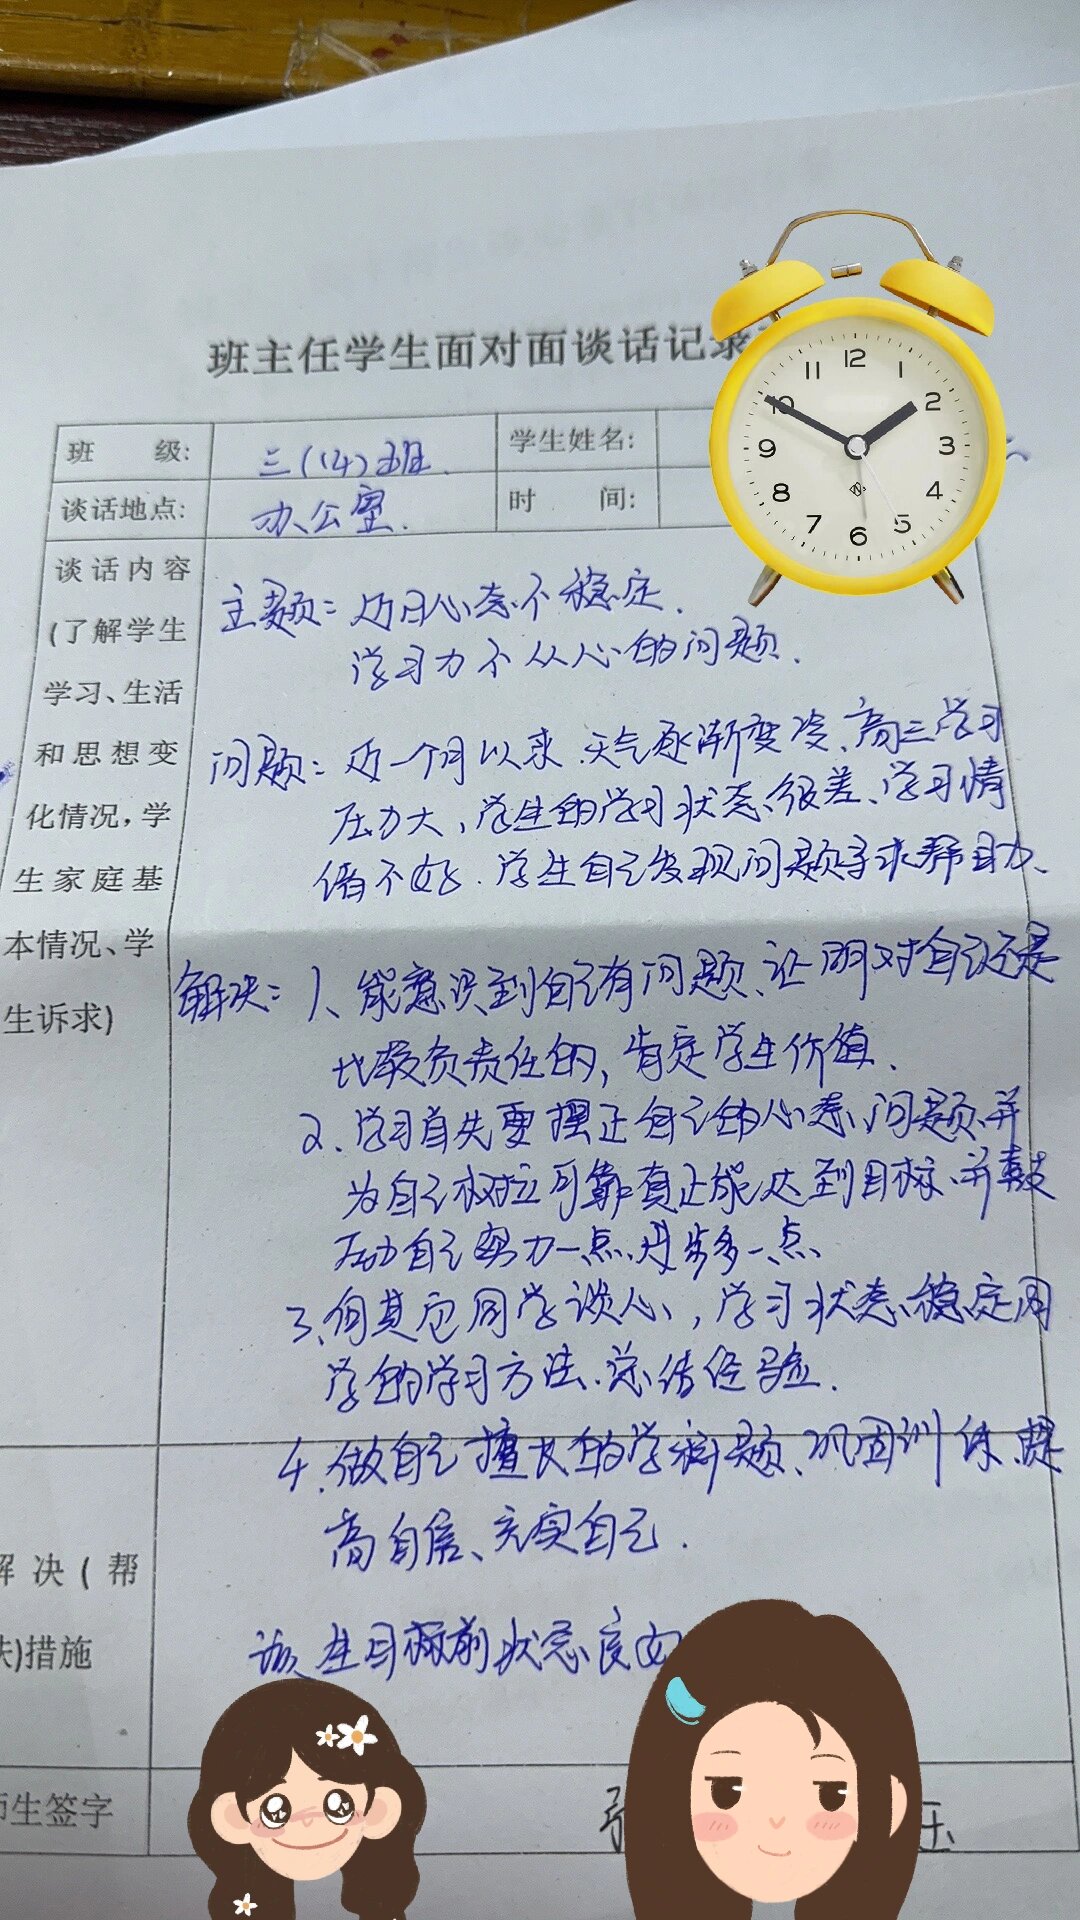 班主任学生面对面谈话记录
班 级: 三(14)班. 学生姓名:
谈话地点: 办公室. 时 间:
谈话内容
(了解学生
学习、生活
和思想变
化情况,学
生家庭基
本情况、学
生诉求)
主题: 近日心态不稳定.
学习力不从心的问题.
问题: 近一个月以来.天气逐渐变冷、高三学习
压力大,学生的学习状态很差、学习情
绪不好.学生自己发现问题寻求帮助、
解决: 1、能意识到自己有问题、证明对自己还是
比较负责任的,肯定学生价值.
2、学习首先要摆正自己的心态、问题、并
为自己树立可靠真正能达到目标、并鼓
励自己努力一点、进步多一点、
3、向其他同学谈心,学习状态稳定同
学的学习方法、总结经验.
4、做自己擅长的学科题、巩固训练、提
高自信、充实自己.
解决(帮
扶)措施
该生目标前状态良好
师生签字
12 1 2 3 4 5 6 7 8 9 10 11